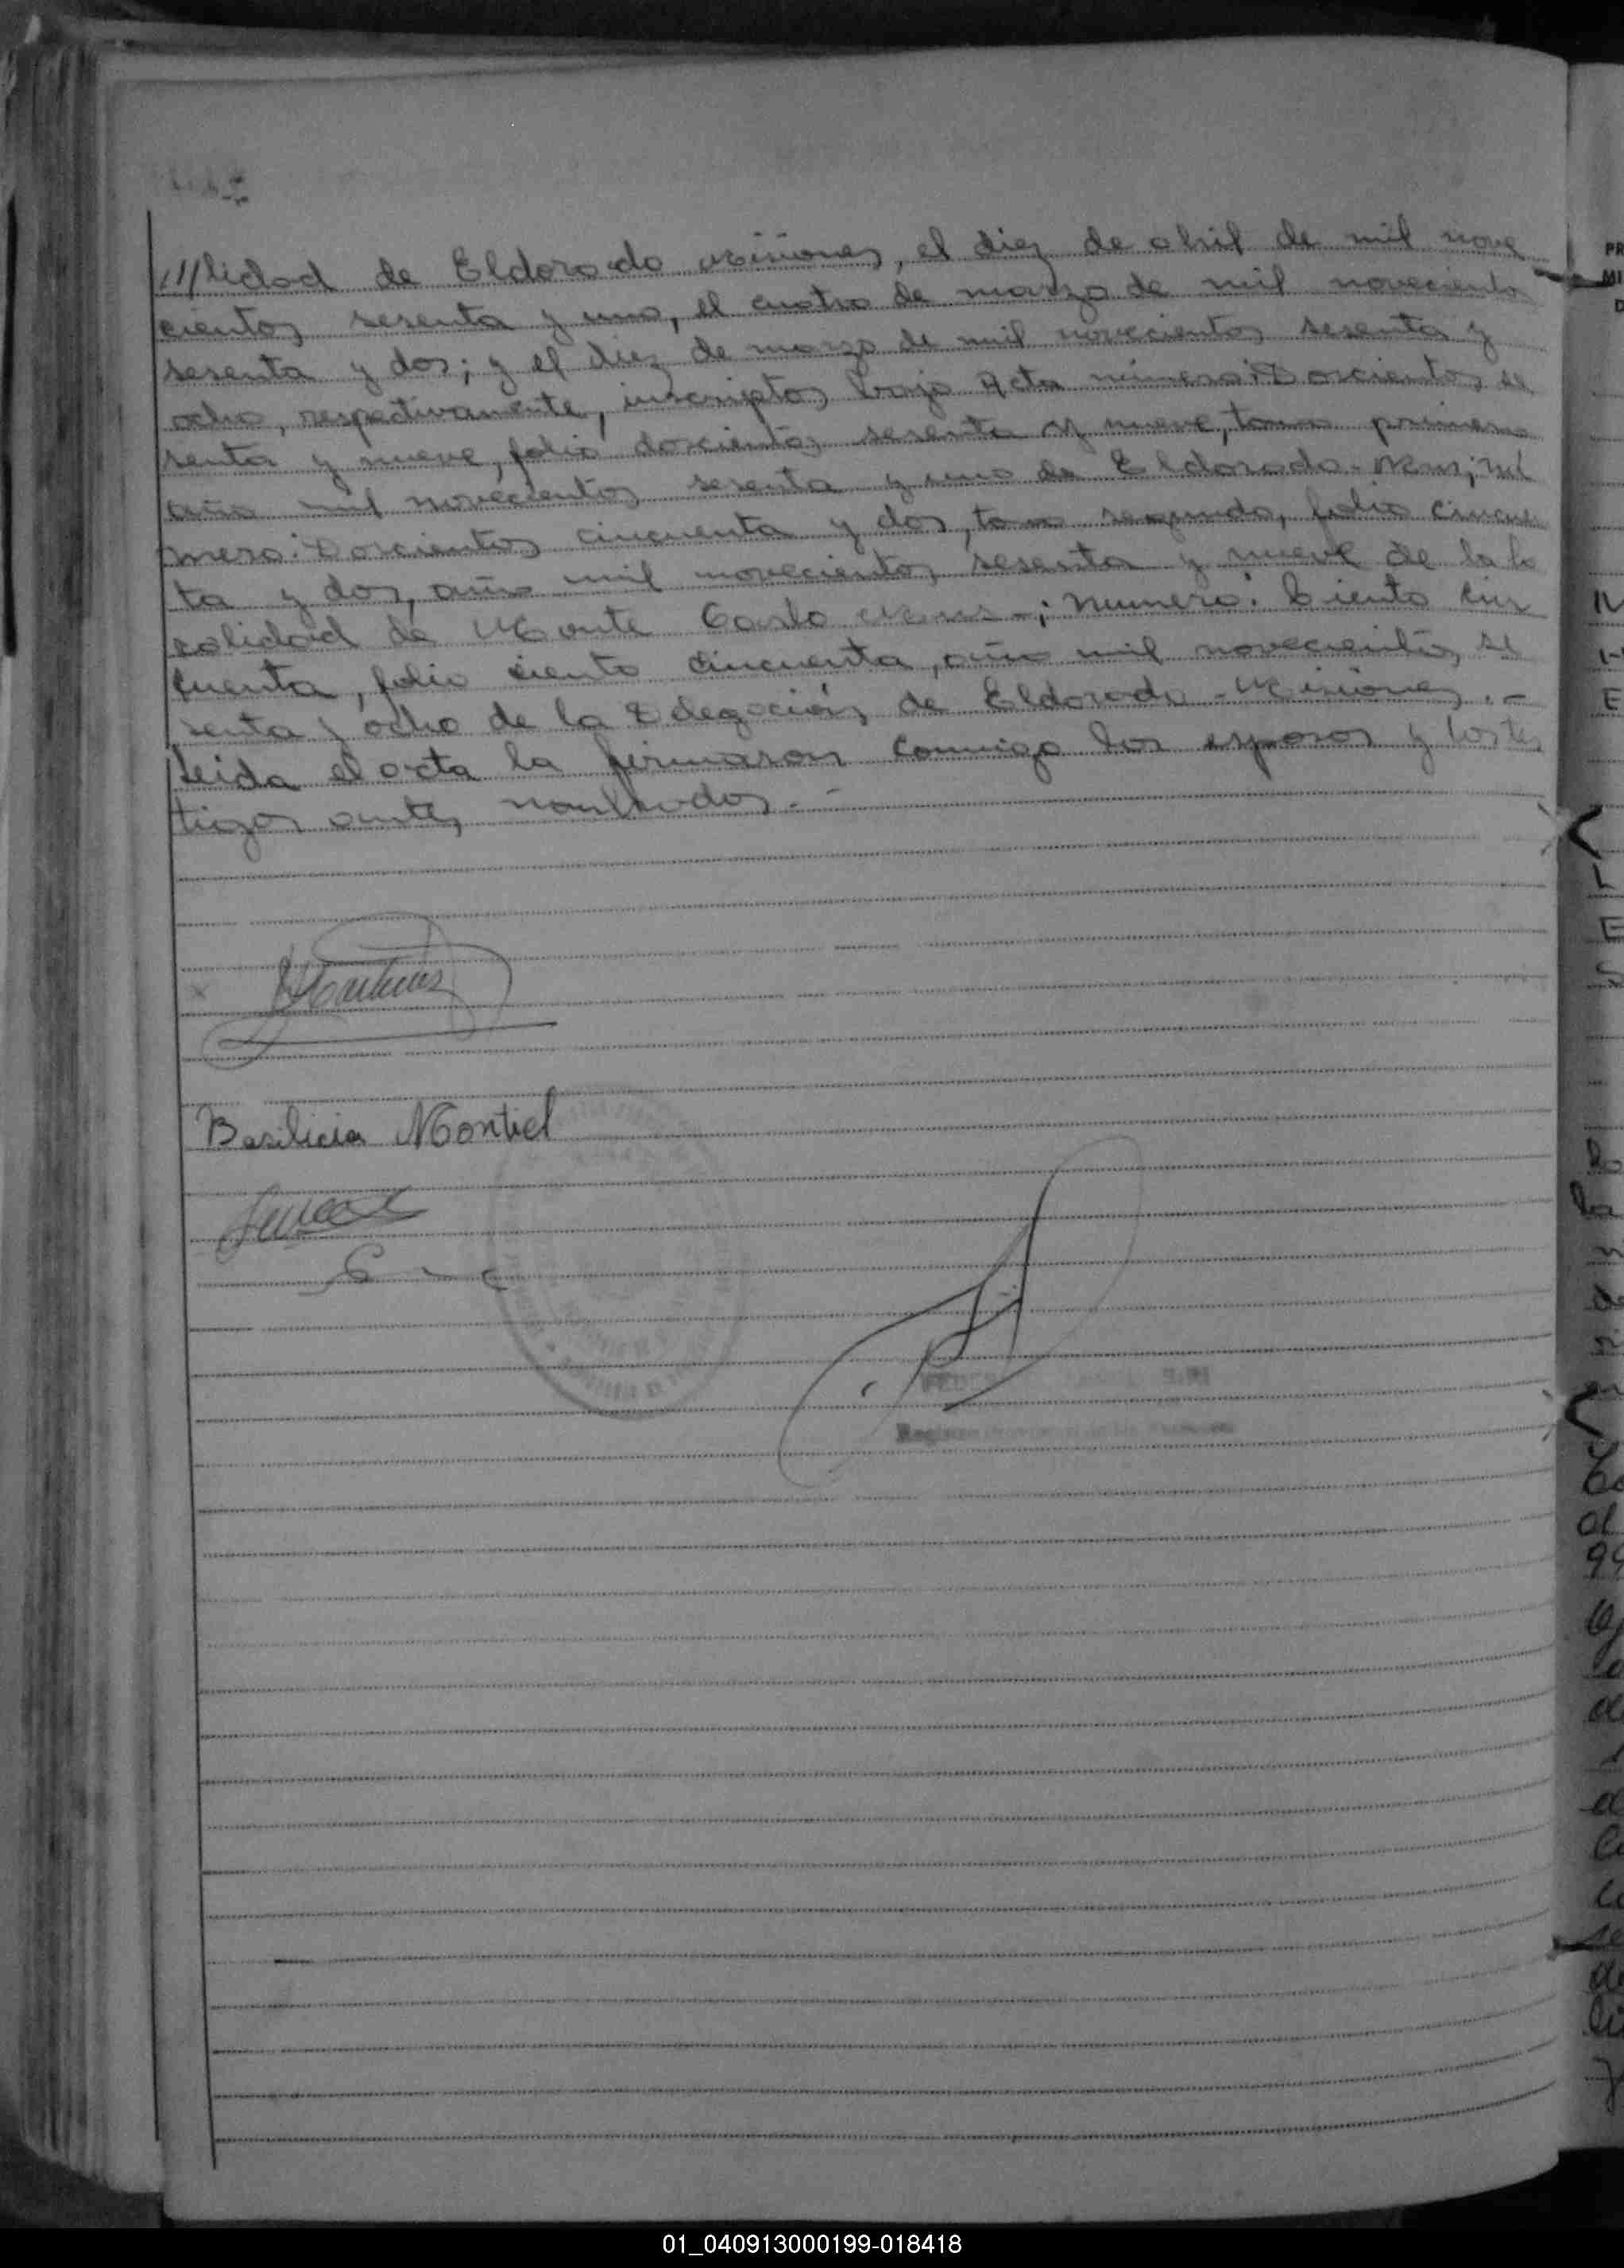 ///lidad de Eldorado Misiones, el diez de abril de mil nove
cientos sesenta y uno, el cuatro de marzo de mil novecientos
sesenta y dos; y el diez de marzo de mil novecientos sesenta y
ocho, respectivamente, inscriptos bajo Acta número: Doscientos se
senta y nueve, folio doscientos sesenta y nueve, tomo primero
año mil novecientos sesenta y uno de Eldorado-Mnes; nú
mero: Doscientos cincuenta y dos, tomo segundo, folio cincuen
ta y dos, año mil novecientos sesenta y nueve de la lo
calidad de Monte Carlo Mnes-; número: Ciento cin
cuenta, folio ciento cincuenta, año mil novecientos se
senta y ocho de la Delegación de Eldorado-Misiones.-
Leida el acta la firmaron conmigo los esposos y los tes
tigos antes nombrados.-
Basilicia Montiel
01_040913000199-018418